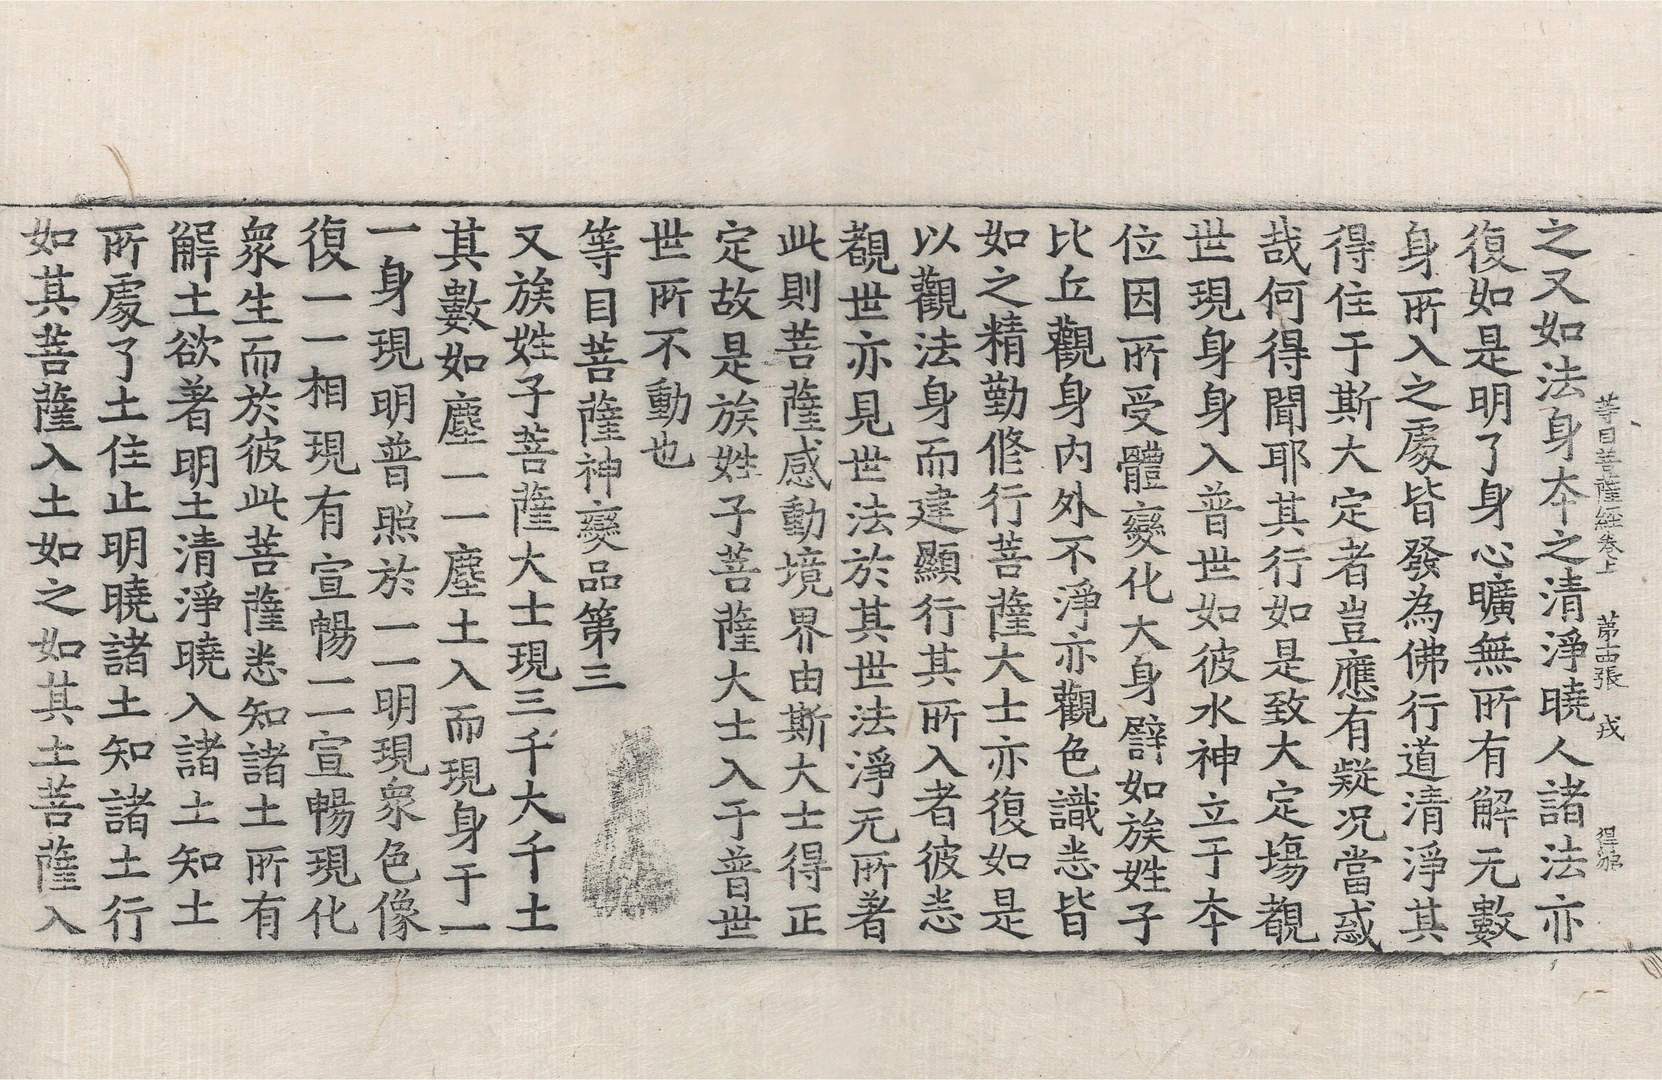 等目菩薩經卷上 第十四張 戎
之又如法身本之清淨曉人諸法亦
復如是明了身心曠無所有解无數
身所入之處皆發為佛行道清淨其
得住于斯大定者豈應有疑况當惑
哉何得聞耶其行如是致大定場覩
世現身身入普世如彼水神立于本
位因所受體變化大身譬如族姓子
比丘觀身內外不淨亦觀色識悉皆
如之精勤修行菩薩大士亦復如是
以觀法身而建顯行其所入者彼悉
覩世亦見世法於其世法淨无所著
此則菩薩感動境界由斯大士得正
定故是族姓子菩薩大士入于普世
世所不動也
等目菩薩神變品第三
又族姓子菩薩大士現三千大千土
其數如塵一一塵土入而現身于一
一身現明普照於一一明現衆色像
復一一相現有宣暢一一宣暢現化
衆生而於彼此菩薩悉知諸土所有
解土欲著明土清淨曉入諸土知土
所處了土住止明曉諸土知諸土行
如其菩薩入土如之如其土菩薩入